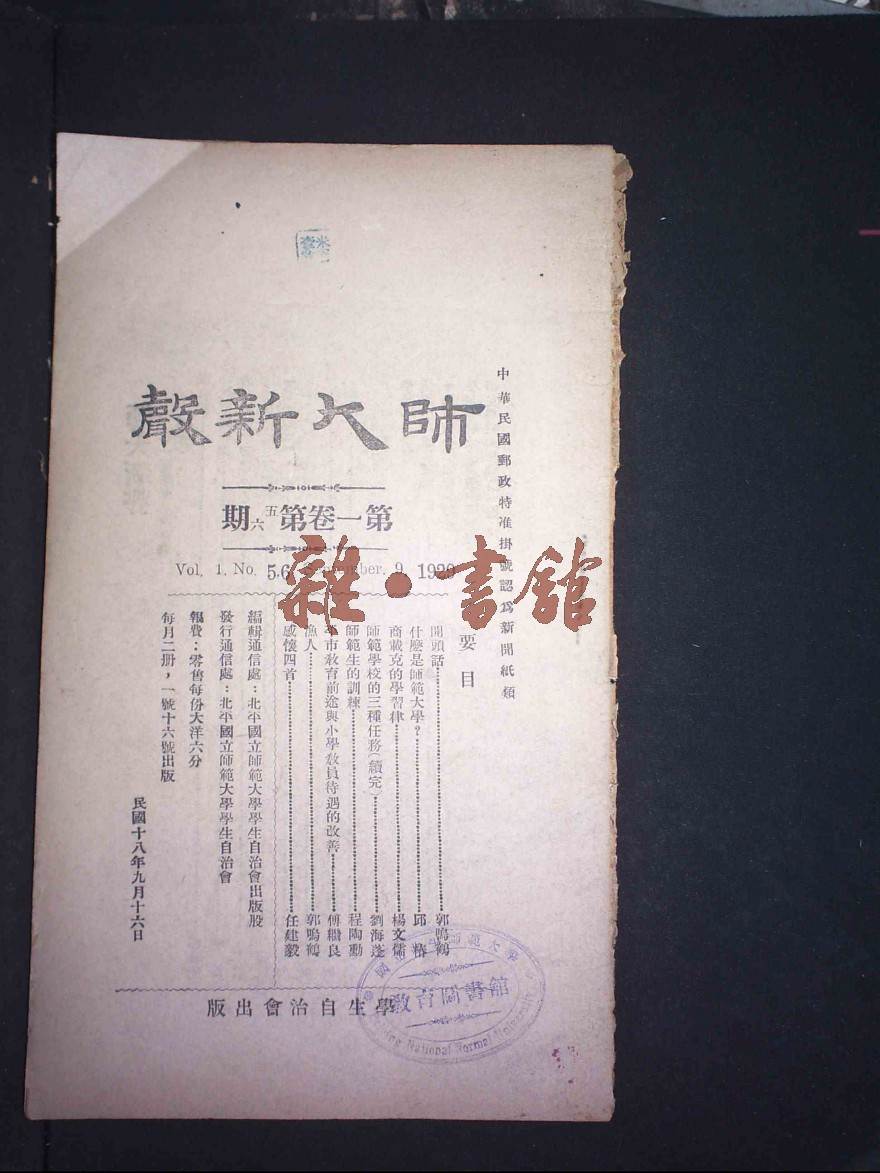 中華民國郵政特准掛號認爲新聞紙類
師大新聲
第一卷第五六期
Vol. 1. No. 5.6 September. 9. 1929
要目
開頭話 郭鳴鶴
什麼是師範大學？ 邱椿
商戴克的學習律 楊文儒
師範學校的三種任務（續完） 劉海蓬
師範生的訓練 程陶勳
市教育前途與小學教員待遇的改善
漁人 郭鳴鶴
感懷四首 任建毅
編輯通信處：北平國立師範大學學生自治會出版股
發行通信處：北平國立師範大學學生自治會
報費：零售每份大洋六分
每月二册，一號十六號出版
民國十八年九月十六日
學生自治會出版
教育圖書館
National Normal University
雜·書舘